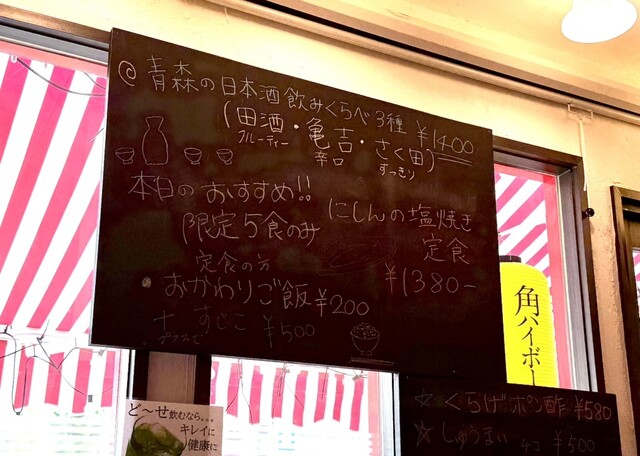 ◎青森の日本酒飲みくらべ3種 ¥1400
(田酒・亀吉・さく田)
フルーティー 辛口 すっきり
本日のおすすめ!!
限定5食のみ
にしんの塩焼き
定食
¥1380-
定食の方
・おかわりご飯¥200
+すじこ ¥500
プラスで
角ハイボー
☆くらげポン酢 ¥580
☆しゅうまい 4コ ¥500
ど〜せ飲むなら。。。
キレイに
健康に